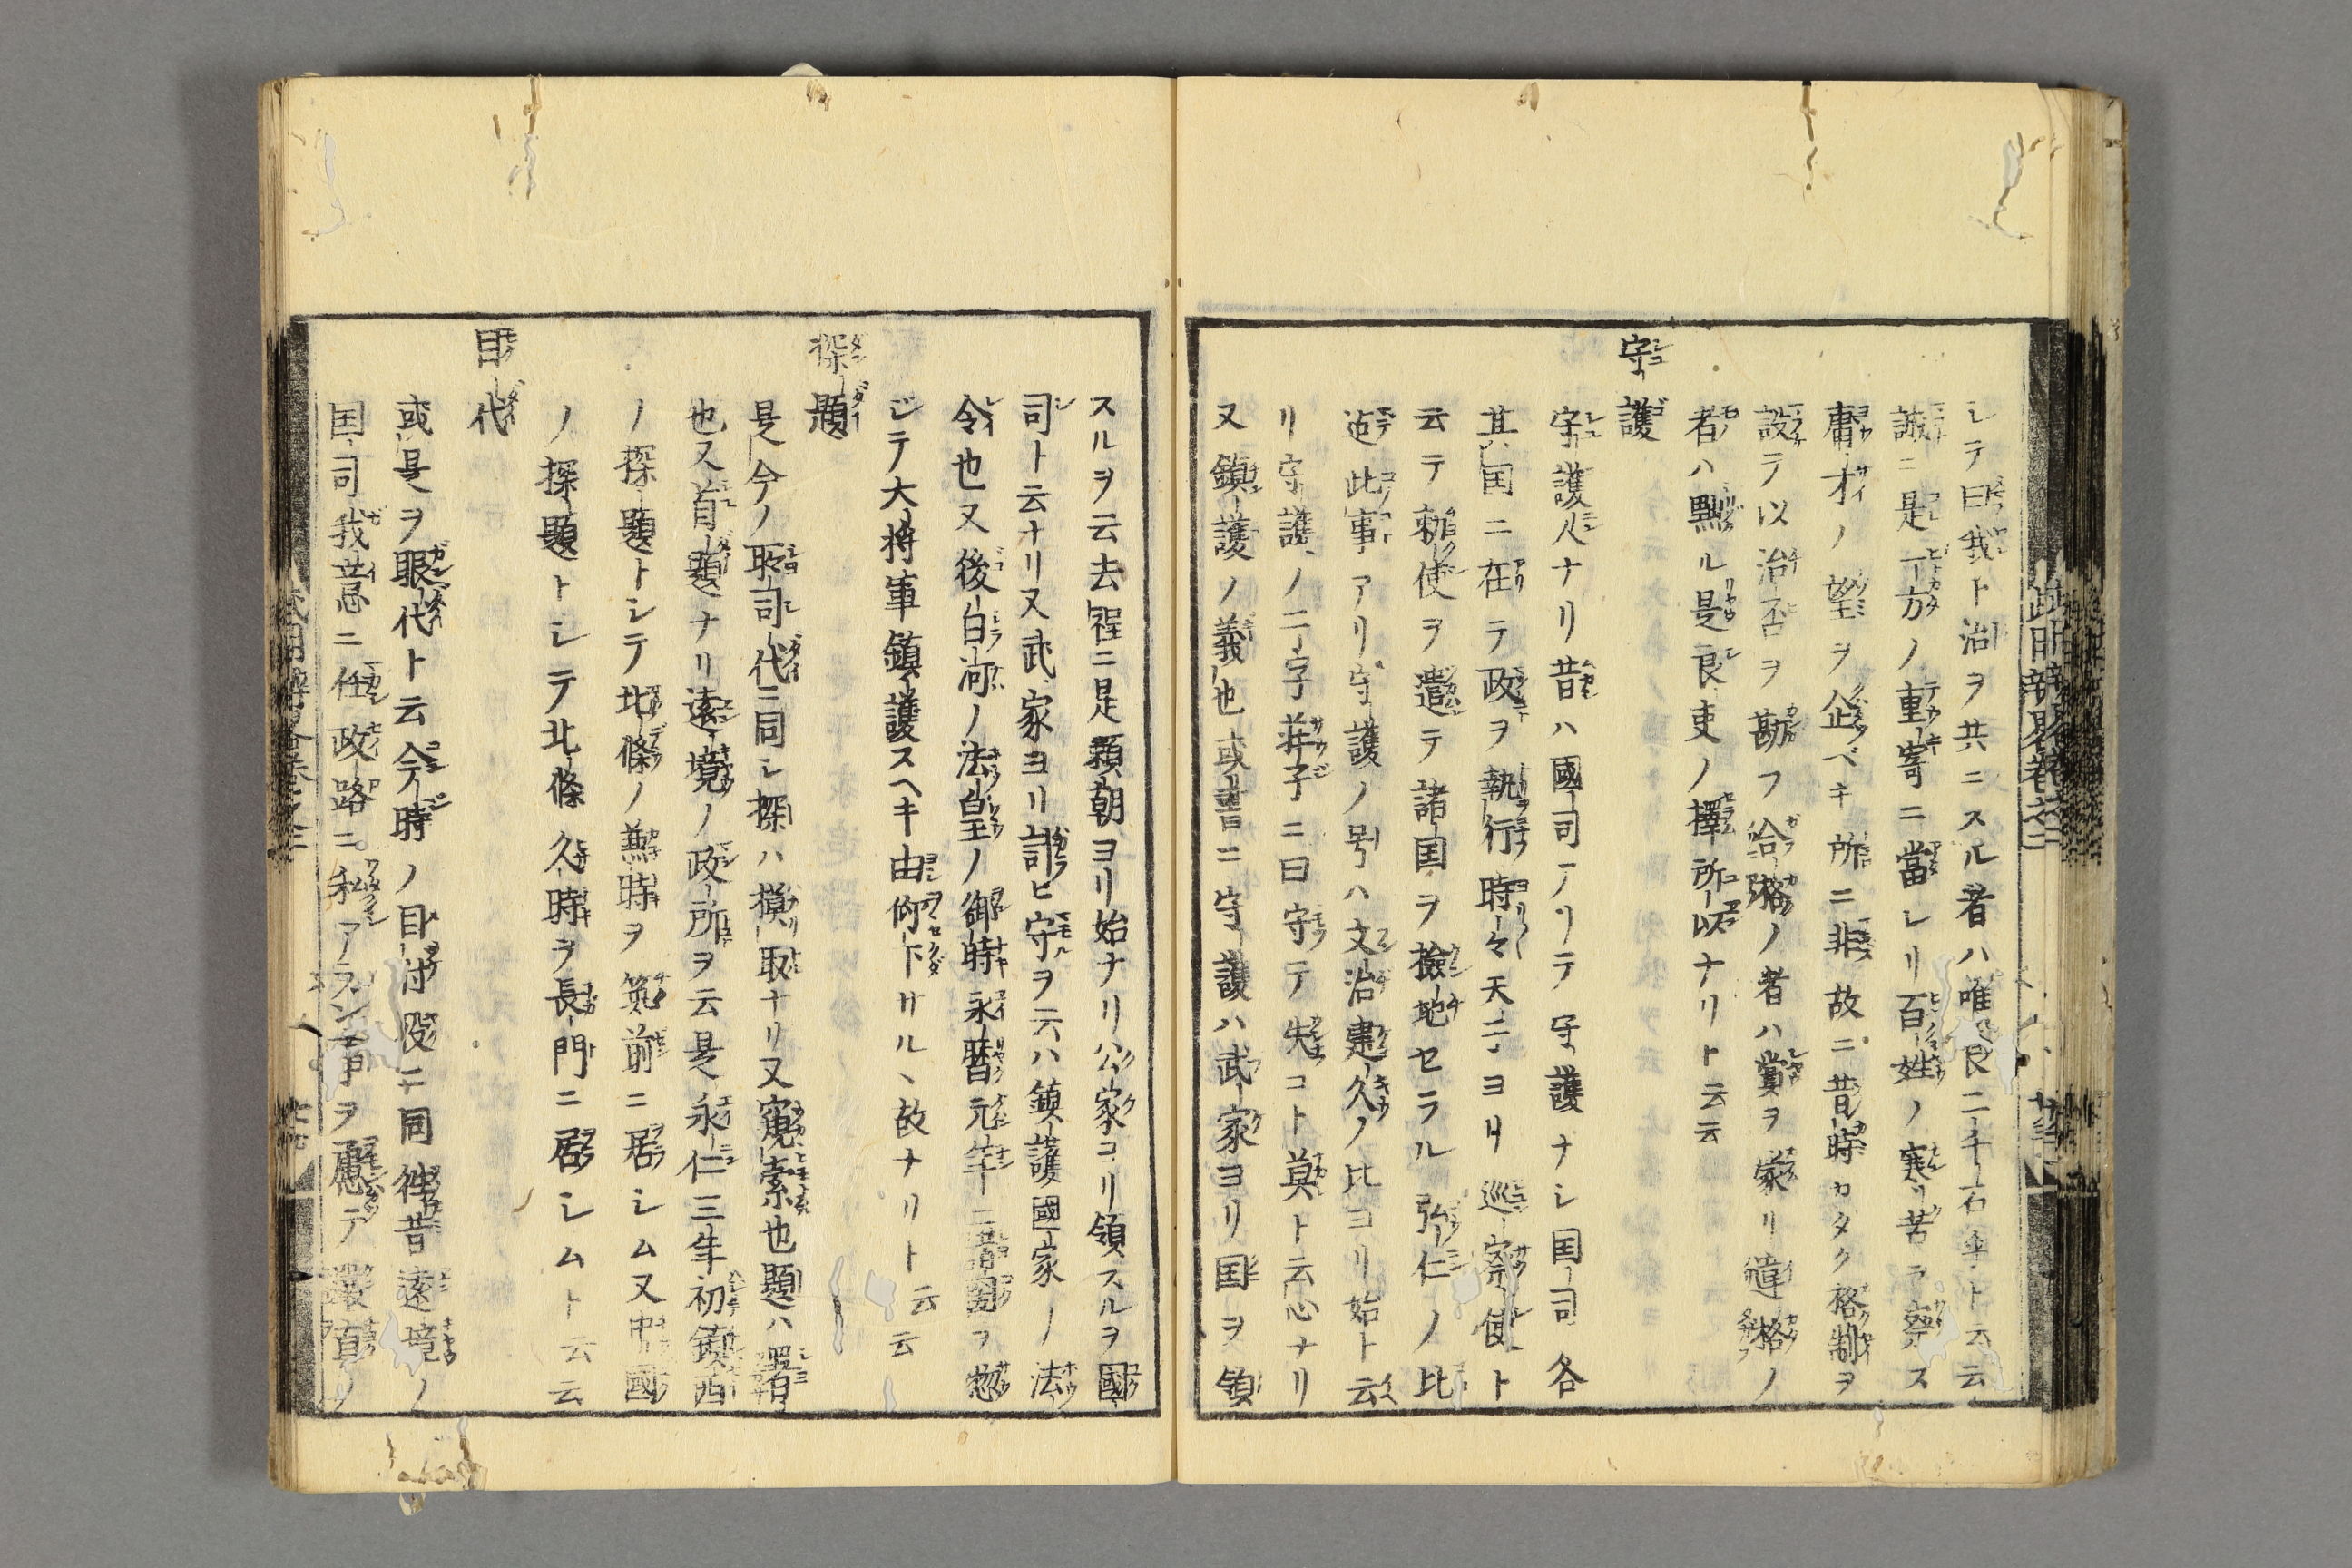 シテ曰我ト治ヲ共ニスル者ハ唯良二千石乎ト云云
誠ニ是一方ノ重寄ニ當レリ百姓ノ寒苦ヲ察ス
庸才ノ望ヲ企ベキ所ニ非故ニ昔時カタク格制ヲ
設テ以治否ヲ勘フ合格ノ者ハ賞ヲ蒙リ違格ノ
者ハ黜ル是良吏ノ擇所以ナリト云云
守護
守護人ナリ昔ハ國司アリテ守護ナシ国司各
其国ニ在テ政ヲ執行時々天子ヨリ巡察使ト
云テ勅使ヲ遣テ諸国ヲ撿地セラル弘仁ノ比
迠此事アリ守護ノ号ハ文治建久ノ比ヨリ始ト云
リ守護ノ二字荘子ニ曰守テ失コト莫ト云心ナリ
又鎮護ノ義也或書ニ守護ハ武家ヨリ国ヲ領
スルヲ云去程ニ是頼朝ヨリ始ナリ公家ヨリ領スルヲ國
司ト云ナリ又武家ヨリ訶ヒ守ヲ云ハ鎮護國家ノ法
令也又後白河ノ法皇ノ御時永暦元年ニ諸国ヲ惣
ジテ大将軍鎮護スヘキ由仰下サル、故ナリト云云
探題
是今ノ所司代ニ同シ探ハ摸取ナリ又窺索也題ハ
也又首題ナリ遠境ノ政所ヲ云是永仁三年初鎮西
ノ探題トシテ北條ノ兼時ヲ筑前ニ居シム又中國
ノ探題トシテ北條久時ヲ長門ニ居シムト云云
目代
或是ヲ眼代ト云今時ノ目付役ニ同往昔遠境ノ
国司我意ニ任政路ニ私アラン事ヲ慮テ直ノ